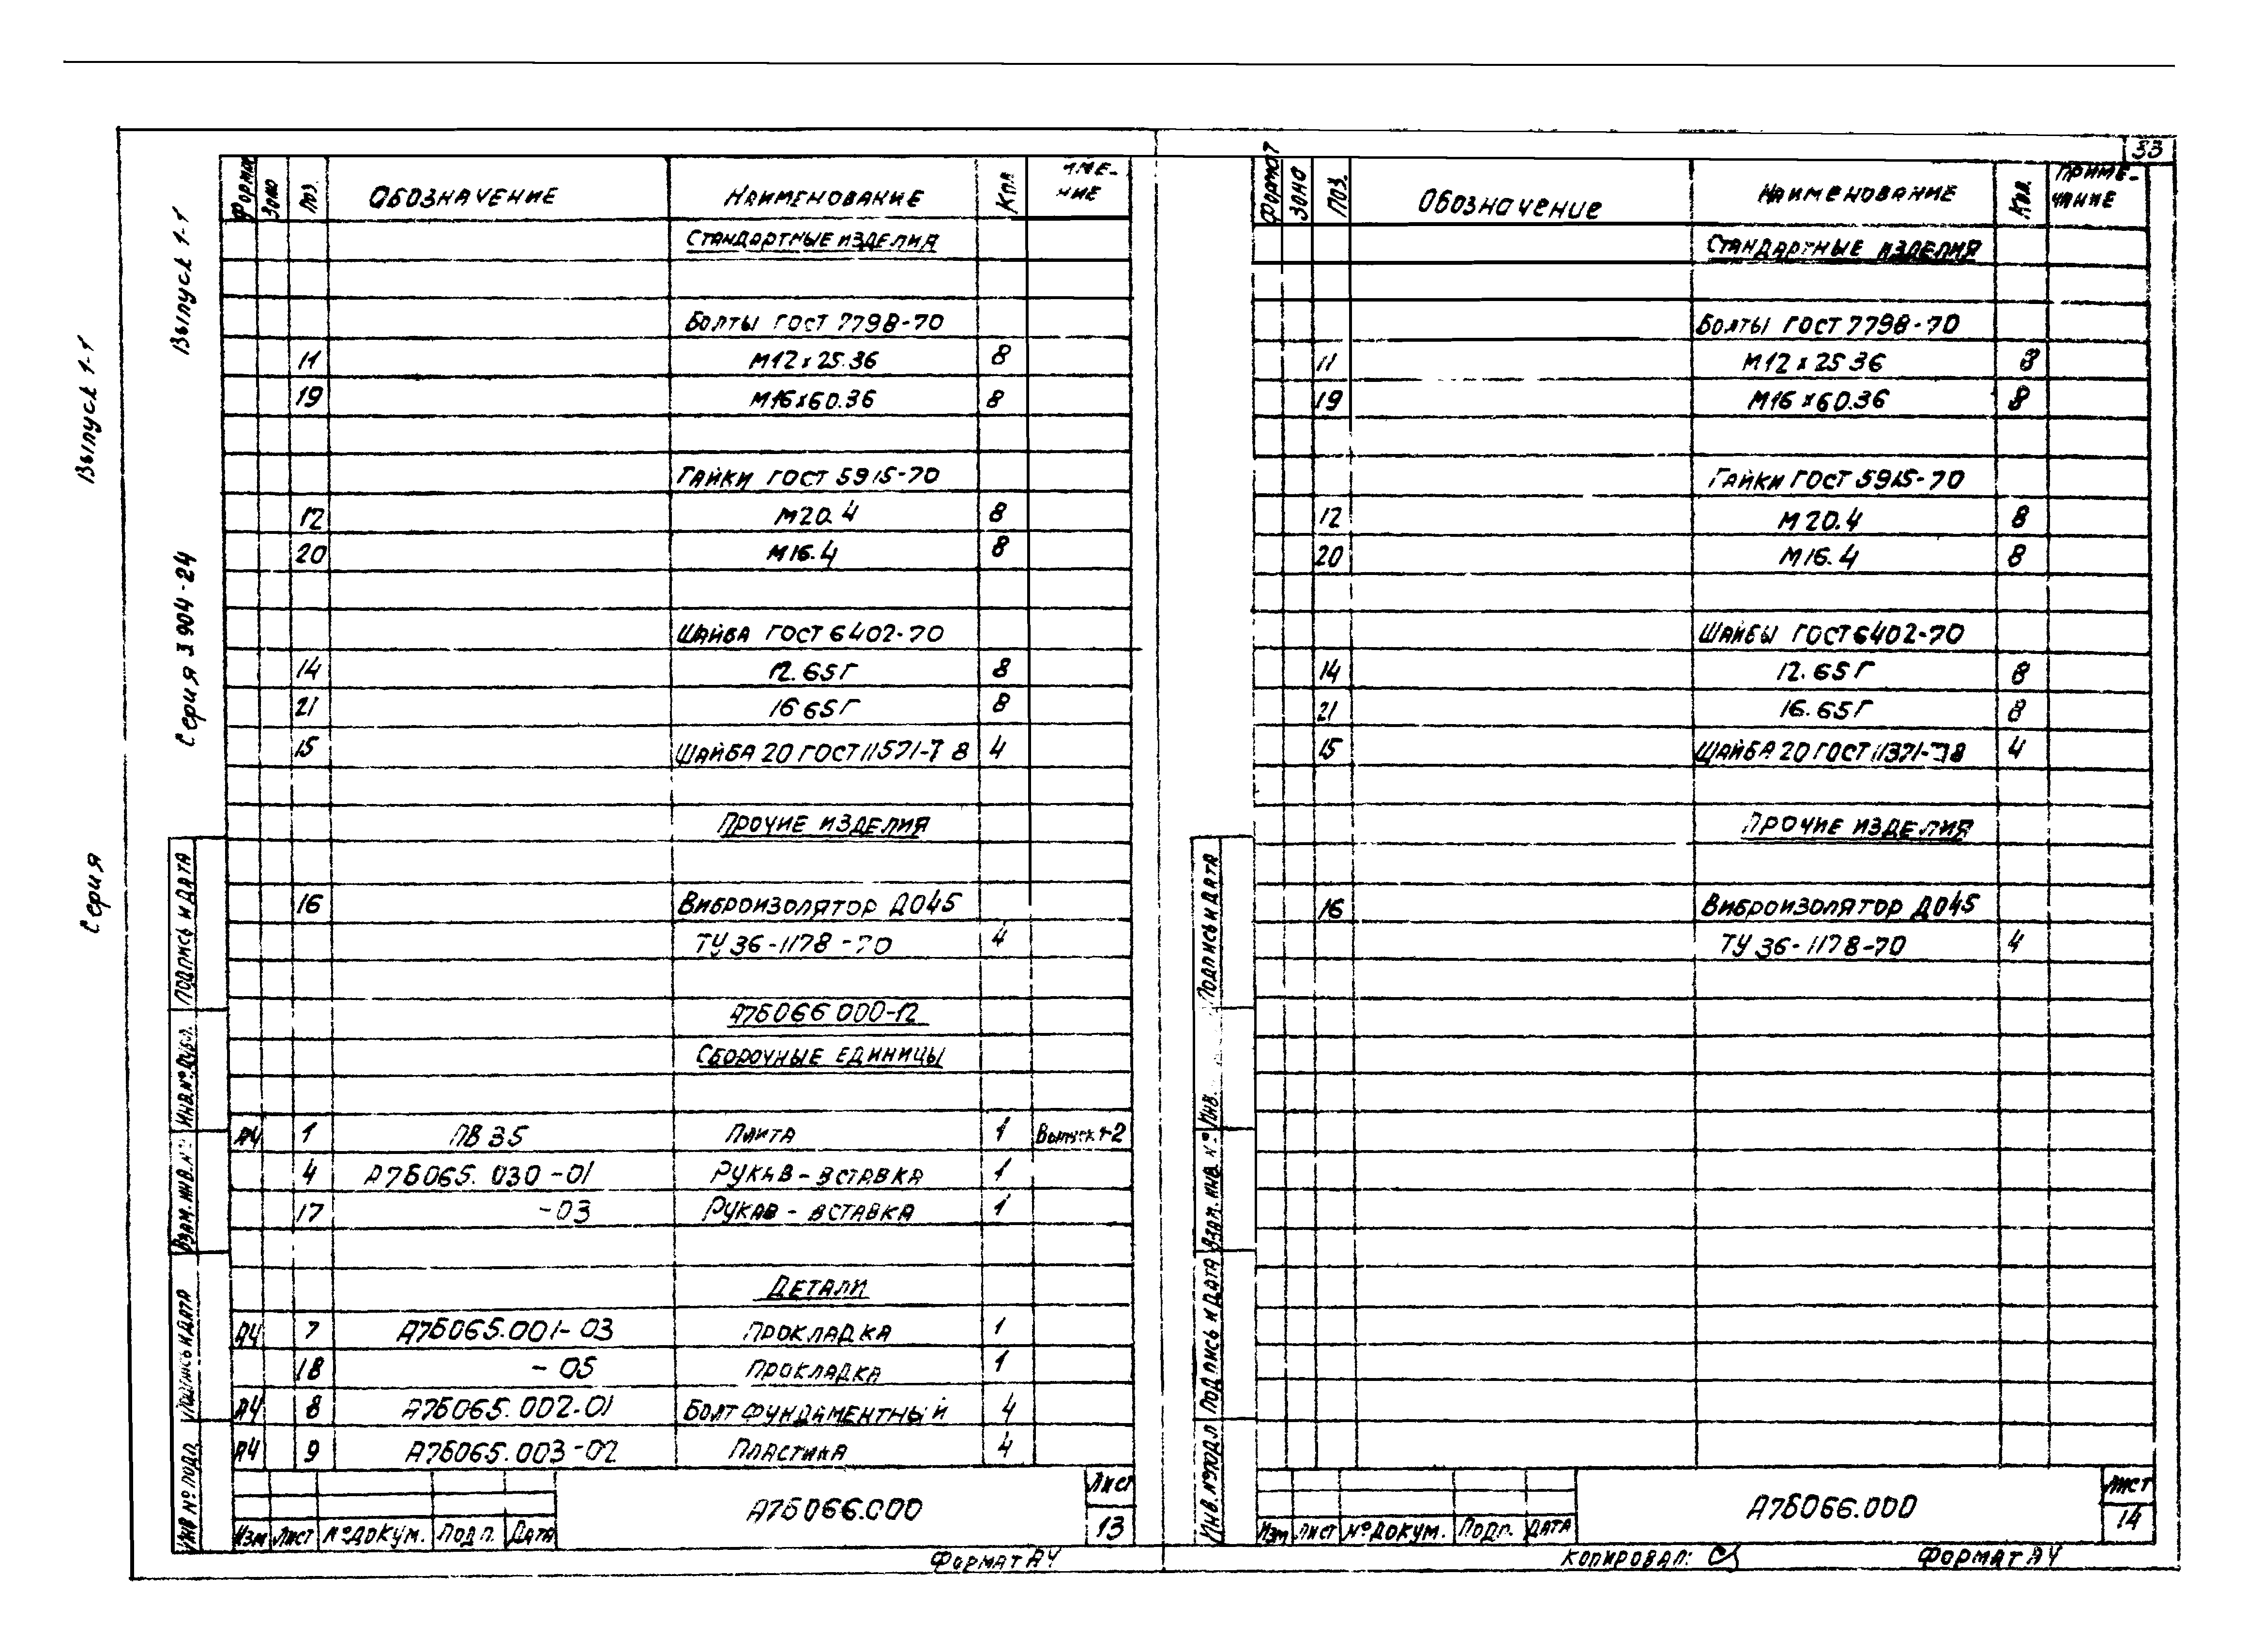 33
Выпуск 1-1
Серия
Выпуск 1-1
Серия 3 904-24
Зона Поз. Обозначение Наименование Кол
Стандартные изделия
Болты ГОСТ 7798-70
11 М12х25.36 8
19 М16х60.36 8
Гайки ГОСТ 5915-70
12 М20.4 8
20 М16.4 8
Шайба ГОСТ 6402-70
14 12.65Г 8
21 16 65Г 8
15 Шайба 20 ГОСТ 11571-78 4
Прочие изделия
16 Виброизолятор Д045
ТУ 36-1178-70 4
А7Б066 000-12
Сборочные единицы
А4 1 ПВ 35 Плита 1 Выпуск 1-2
4 А7Б065.030-01 Рукав-вставка 1
17 -03 Рукав-вставка 1
Детали
А4 7 А7Б065.001-03 Прокладка 1
18 -05 Прокладка 1
А4 8 А7Б065.002-01 Болт фундаментный 4
А4 9 А7Б065.003-02 Пластина 4
Подпись и дата
Инв.№дубл.
Взам.инв.№
Подпись и дата
Инв №подл.
Изм Лист №докум. Подп. Дата
А7Б066.000
Лист
13
Формат А4
Формат Зона Поз. Обозначение Наименование Кол. Приме-
чание
Стандартные изделия
Болты ГОСТ 7798-70
11 М12х25 36 8
19 М16х60.36 8
Гайки ГОСТ 5915-70
12 М20.4 8
20 М16.4 8
Шайбы ГОСТ 6402-70
14 12.65Г 8
21 16.65Г 8
15 Шайба 20 ГОСТ 11371-78 4
Прочие изделия
16 Виброизолятор Д045
ТУ 36-1178-70 4
Подпись и дата
Инв.
Взам.инв.№
Подпись и дата
Инв.№подл
Изм Лист №докум. Подп. Дата
А7Б066.000
Лист
14
Копировал:
Формат А4